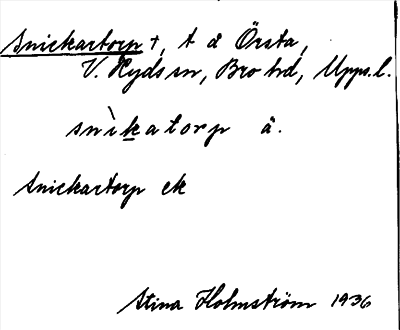 Snickartorp +, t å Örsta,
V. Ryds sn, Bro hd, Upps.l.
snìkatorp å.
Snickartorp ek
Stina Holmström 1936